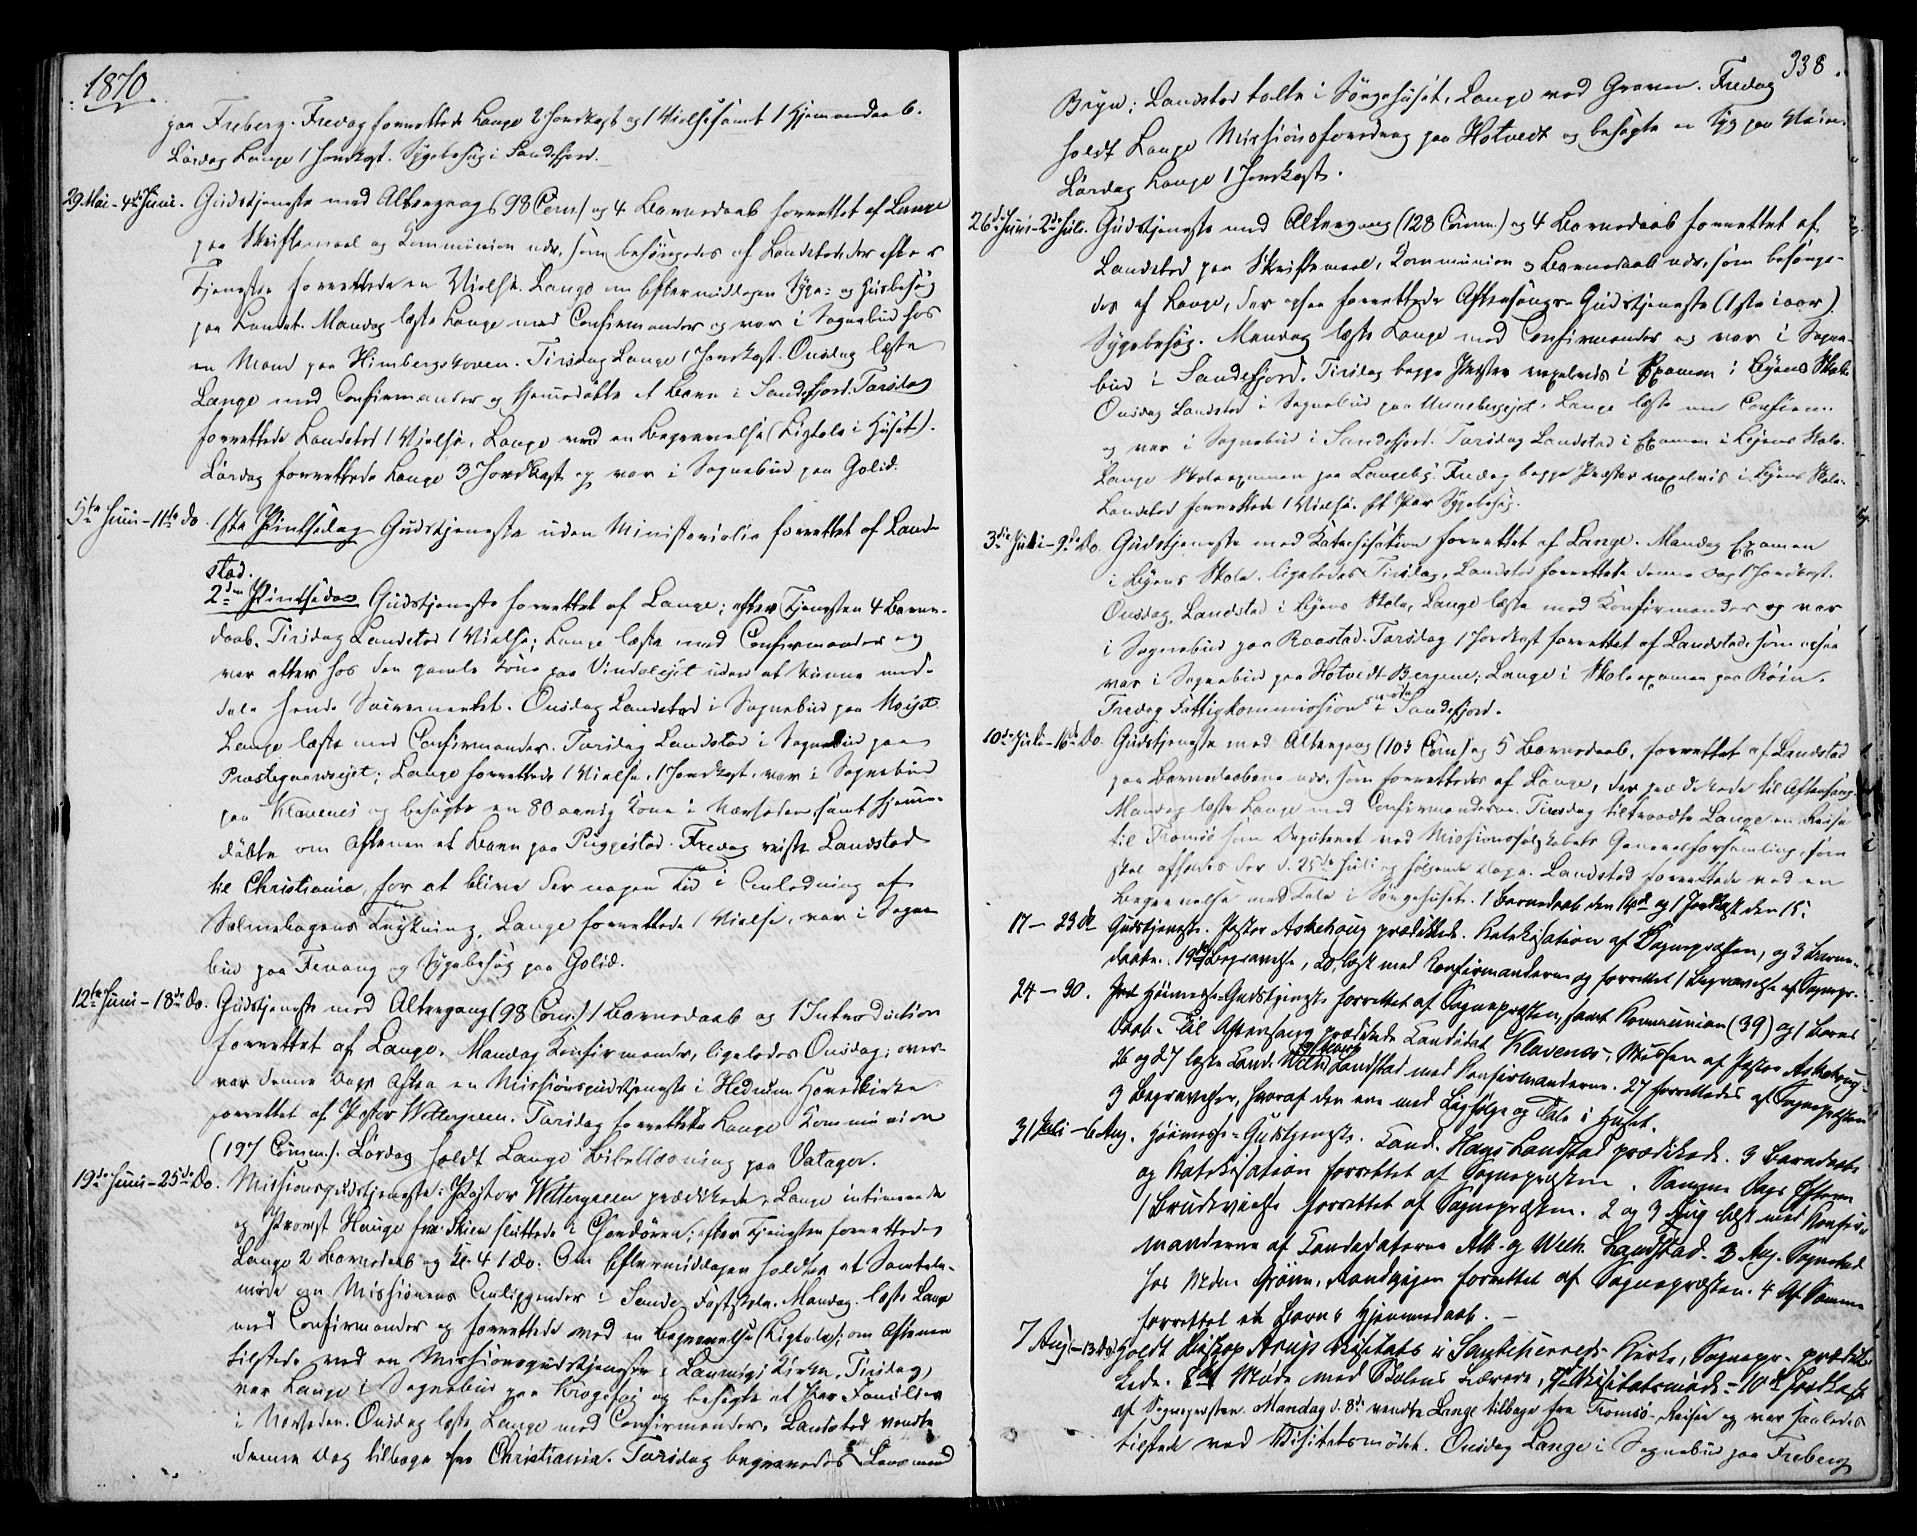 1870
paa Freberg. Fredag forrettede Lange 2 Jordkast og 1 Vielse samt 1 Hjemmedaab.
Lørdag Lange 1 Jordkast. Sygebesøg i Sandefjord.
29. Mai – 4de Juni. Gudstjeneste med Altergang (98 Com.) og 4 Barnedaab forrettet af Lange
paa Skriftemaal og Kommunion nær, som besørgedes af Landstad, der efter
Tjenesten forrettede en Vielse. Lange om Eftermiddagen Syge- og Husbesøg
paa Landet. Mandag læste Lange med Confirmander og var i Sognebud hos
en Mand paa Himbergskoven. Tirsdag Lange 1 Jordkast. Onsdag læste
Lange med Confirmander og hjemmedøbte et Barn i Sandefjord. Torsdag
forrettede Landstad 1 Vielse, Lange ved en Begravelse (Ligtale i Huset).
Lørdag forrettede Lange 3 Jordkast og var i Sognebud paa Golid.
5te Juni – 11te do. 1ste Pintsedag Gudstjeneste uden Ministerialia forrettet af Land-
stad.
2den Pintsedag Gudstjeneste forrettet af Lange; efter Tjenesten 4 Barne-
daab. Tirsdag Landstad 1 Vielse; Lange læste med Confirmander og
var atter hos den gamle Kone paa Vindalsejet uden at kunne med-
dele hende Sacramentet. Onsdag Landstad i Sognebud paa
Lange læste med Confirmander. Torsdag Landstad i Sognebud paa
Præstegaardsejet; Lange forrettede 1 Vielse, 1 Jordkast, var i Sognebud
paa Klavenes og besøgte en 80 aarig Kone i Nærheden, samt hjemme-
døbte om Aftenen et Barn paa Puggestad. Fredag reiste Landstad
til Christiania, for at blive der nogen Tid i Anledning af
Salmebogens Trykning, Lange forrettede 1 Vielse, var i Sogne-
bud paa Fevang og Sygebesøg paa Golid.
12te Juni – 18de do. Gudstjeneste med Altergang (98 Com.) 1 Barnedaab og 1 Introduction
forrettet af Lange. Mandag Konfirmander, ligeledes Onsdag; over-
var denne Dags Aften en Missionsgudstjeneste i Hedrum Hovedkirke
forrettet af Pastor Wettergreen. Torsdag forrettede Lange Kommunion
(197 Comm.). Lørdag holdt Lange Bibellæsning paa Vatager.
19de Juni – 25de Do. Missionsgudstjeneste: Pastor Wettergreen prædikede, Lange intimerede
og Provst Hauge fra Skien sluttede i Chordøren; efter Tjenesten forrettede
Lange 2 Barnedaab og Kl. 4 1 do. Om Eftermiddagen holdtes et Samtale-
møde om Missionens Anliggender i Sande Fastskole. Mandag læste Lange
med Confirmander og forrettede ved en Begravelse (Ligtale); om Aftenen
tilstede ved en Missionsgudstjeneste i Laurvigs Kirke. Tirsdag
var Lange i Sognebud paa Krogshøj og besøgte et Par Familier
i Nærheden. Onsdag læste Lange med Confirmander. Landstad vendte
denne Dag tilbage fra Christiania. Torsdag begravedes Lensmand
338.
Bryn; Landstad talte i Sørgehuset, Lange ved Graven. Fredag
holdt Lange Missionsforedrag paa Hotvedt og besøgte en Syg paa
Lørdag Lange 1 Jordkast.
26de Juni – 2de Juli. Gudstjeneste med Altergang (128 Comm.) og 4 Barnedaab forrettet af
Landstad paa Skriftemaal, Kommunion og Barnedaab nær, som besørge-
des af Lange, der ogsaa forrettede Aftensangs-Gudstjeneste (1ste i aar).
Sygebesøg. Mandag læste Lange med Confirmander og var i Sogne-
bud i Sandefjord. Tirsdag begge Præster vexelvis i Examen i Byens Skole.
Onsdag Landstad i Sognebud paa Unnebergejet. Lange læste med Confirm.
og var i Sognebud i Sandefjord. Torsdag Landstad i Examen i Byens Skole.
Lange Skoleexamen paa Langeby. Fredag begge Præster vexelvis i Byens Skole.
Landstad forrettede 1 Vielse. Et Par Sygebesøg.
3die Juli – 9de Do. Gudstjeneste med Katechisation forrettet af Lange. Mandag Examen
i Byens Skole, ligeledes Tirsdag, Landstad forrettede denne Dag 1 Jordkast.
Onsdag, Landstad i Byens Skole, Lange læste med Konfirmander og var
i Sognebud paa Raastad. Torsdag 1 Jordkast forrettet af Landstad, som ogsaa
var i Sognebud paa Hotvedt Bergene; Lange i Skoleexamen paa Røin.
Fredag Fattigkommissionsmøde i Sandefjord.
10de Juli – 16de Do. Gudstjeneste med Altergang (103 Com.) og 5 Barnedaab, forrettet af Landstad
paa Barnedaabene nær, som forrettedes af Lange, der prædikede til Aftensang.
Mandag læste Lange med Confirmanderne. Tirsdag tiltraadte Lange en Reise
til Tromsø som Deputeret ved Missionsselskabets Generalforsamling, som
skal afholdes der d. 25de Juli og følgende Dage. Landstad forrettede ved en
Begravelse med Tale i Sørgehuset. 1 Barnedaab den 14de og 1 Jordkast den 15.
17 – 23 de Gudstjeneste. Pastor Askehoug prædikede. Katekisation af Sognepræsten, og 3 Barne-
daabe. 19de Begravelse, 20, læst med Konfirmanderne og forrettet 1 Begravelse af Sognepr.
24 – 30. Høimesse-Gudstjeneste forrettet af Sognepræsten, samt Kommunion (39) og 1 Barne-
daab. Til Aftensang prædikede Candidat Klavenes, Messen af Pastor Askehoug.
26 og 27 læste Cand. Wilh. Landstad med Konfirmanderne. 27 forrettedes af Sognepræsten
3 Begravelser, hvoraf den ene med Ligfølge og Tale i Huset.
31 Juli – 6 Aug. Høimesse-Gudstjeneste. Cand. Hans Landstad prædikede. 3 Barnedaabe
og Katekisation forrettet af Sognepræsten. Samme Dags Aften
1 Brudevielse forrettet af Sognepræsten. 2 og 3 Aug læst med Konfir-
manderne af Candidaterne Klk. og Wilh. Landstad. 3 Aug. Sognebud
hos Madm Grøm, Sandvigen forrettet af Sognepræsten. 4 af Samme
forrettet et Barns Hjemmedaab. –
7 Aug – 13 do Holdt Biskop Arup Visitats i Sandeherreds Kirke, Sognepr. prædik-
kede. 8de Møde med Skolens Lærere, Visitatsmøde – 10de Jordkast
af Sognepræsten. Mandag d. 8de vendte Lange tilbage fra Tromsø-Reisen og var saaledes
tilstede ved Visitatsmødet. Onsdag Lange i Sognebud paa Freberg